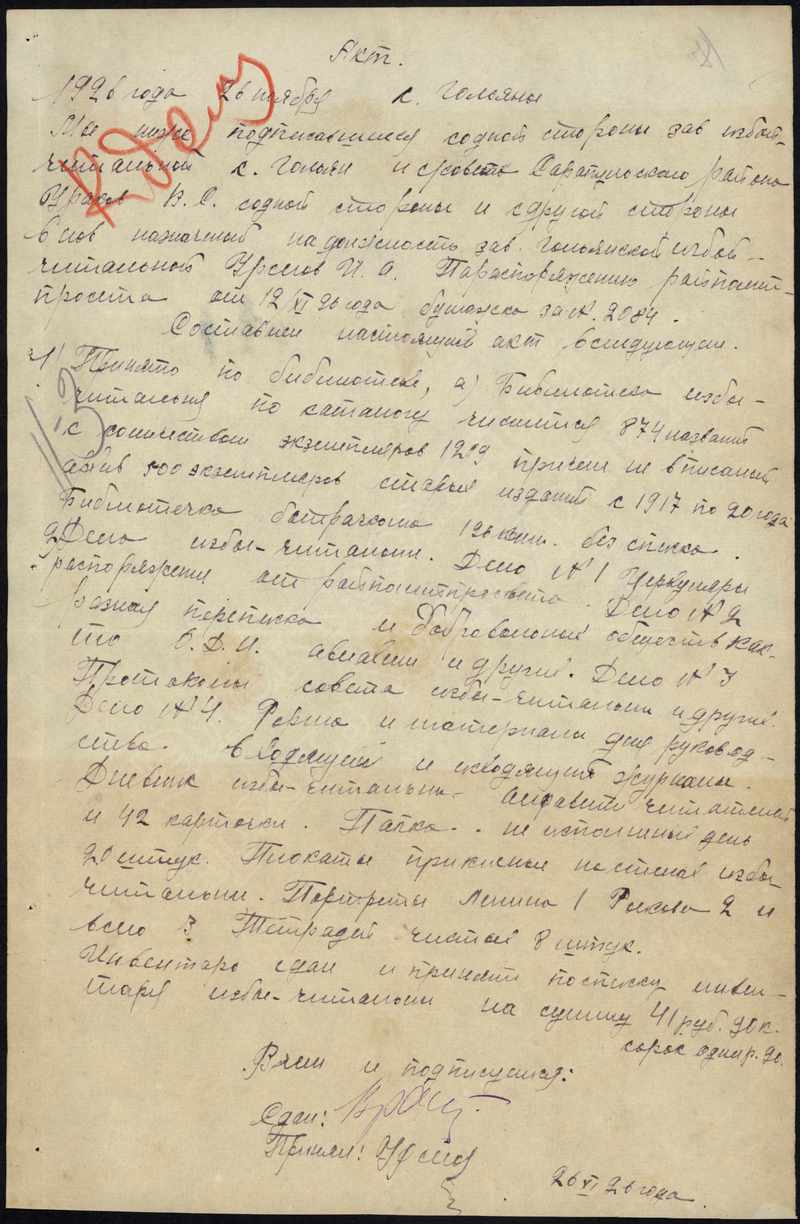 Акт.
1926 года 26 ноября с. Гольяны
Мы ниже подписавшиеся содной стороны зав избой-
читальной с. Гольян Сарапульского района
В. С. содной стороны и сдругой стороны
вновь назначеный надолжность зав. Гольянской избой-
читальной И. А. Парасторяжению райполит-
просвета от 12/XI 26 года бумажка за №. 2084.
Составили настоящий акт вследующем.
1) Принято по библиотеке, а) Библиотека избы-
читальня по каталогу числится 874 названий
с количеством экземпляров 1209 причем не вписаной
500 экземпляров старых изданий с 1917 по 20 года
Библиотечка батрачкома 126 книг. без списка.
2) Дело избы-читальни. Дело №1 Циркуляры
распоряжения от райполитпросвета. Дело №2
разная переписка и добровольных обществ как-
то О.Д.Н. авиахим и другие. Дело №3
Протоколы совета избы-читальни и другие.
Дело №4. и материалы для руковод-
ства. Входящий и исходящий журналы.
Дневник избы-читальни. читателей
и 42 карточки. Папка. не исполненый день
20 штук. Плокаты приклеены настенах избы-
читальни. Портреты Ленина 1 Рыкова 2 и
всего 3 Тетрадей чистых 8 штук.
Инвентарь сдан и принят посписку инвен-
таря избы-читальни на сумму 41 руб. 90 к.
сорок один р. 90.
В чем и подписуемся:
Сдал:
Принял:
26 XI 26 года.